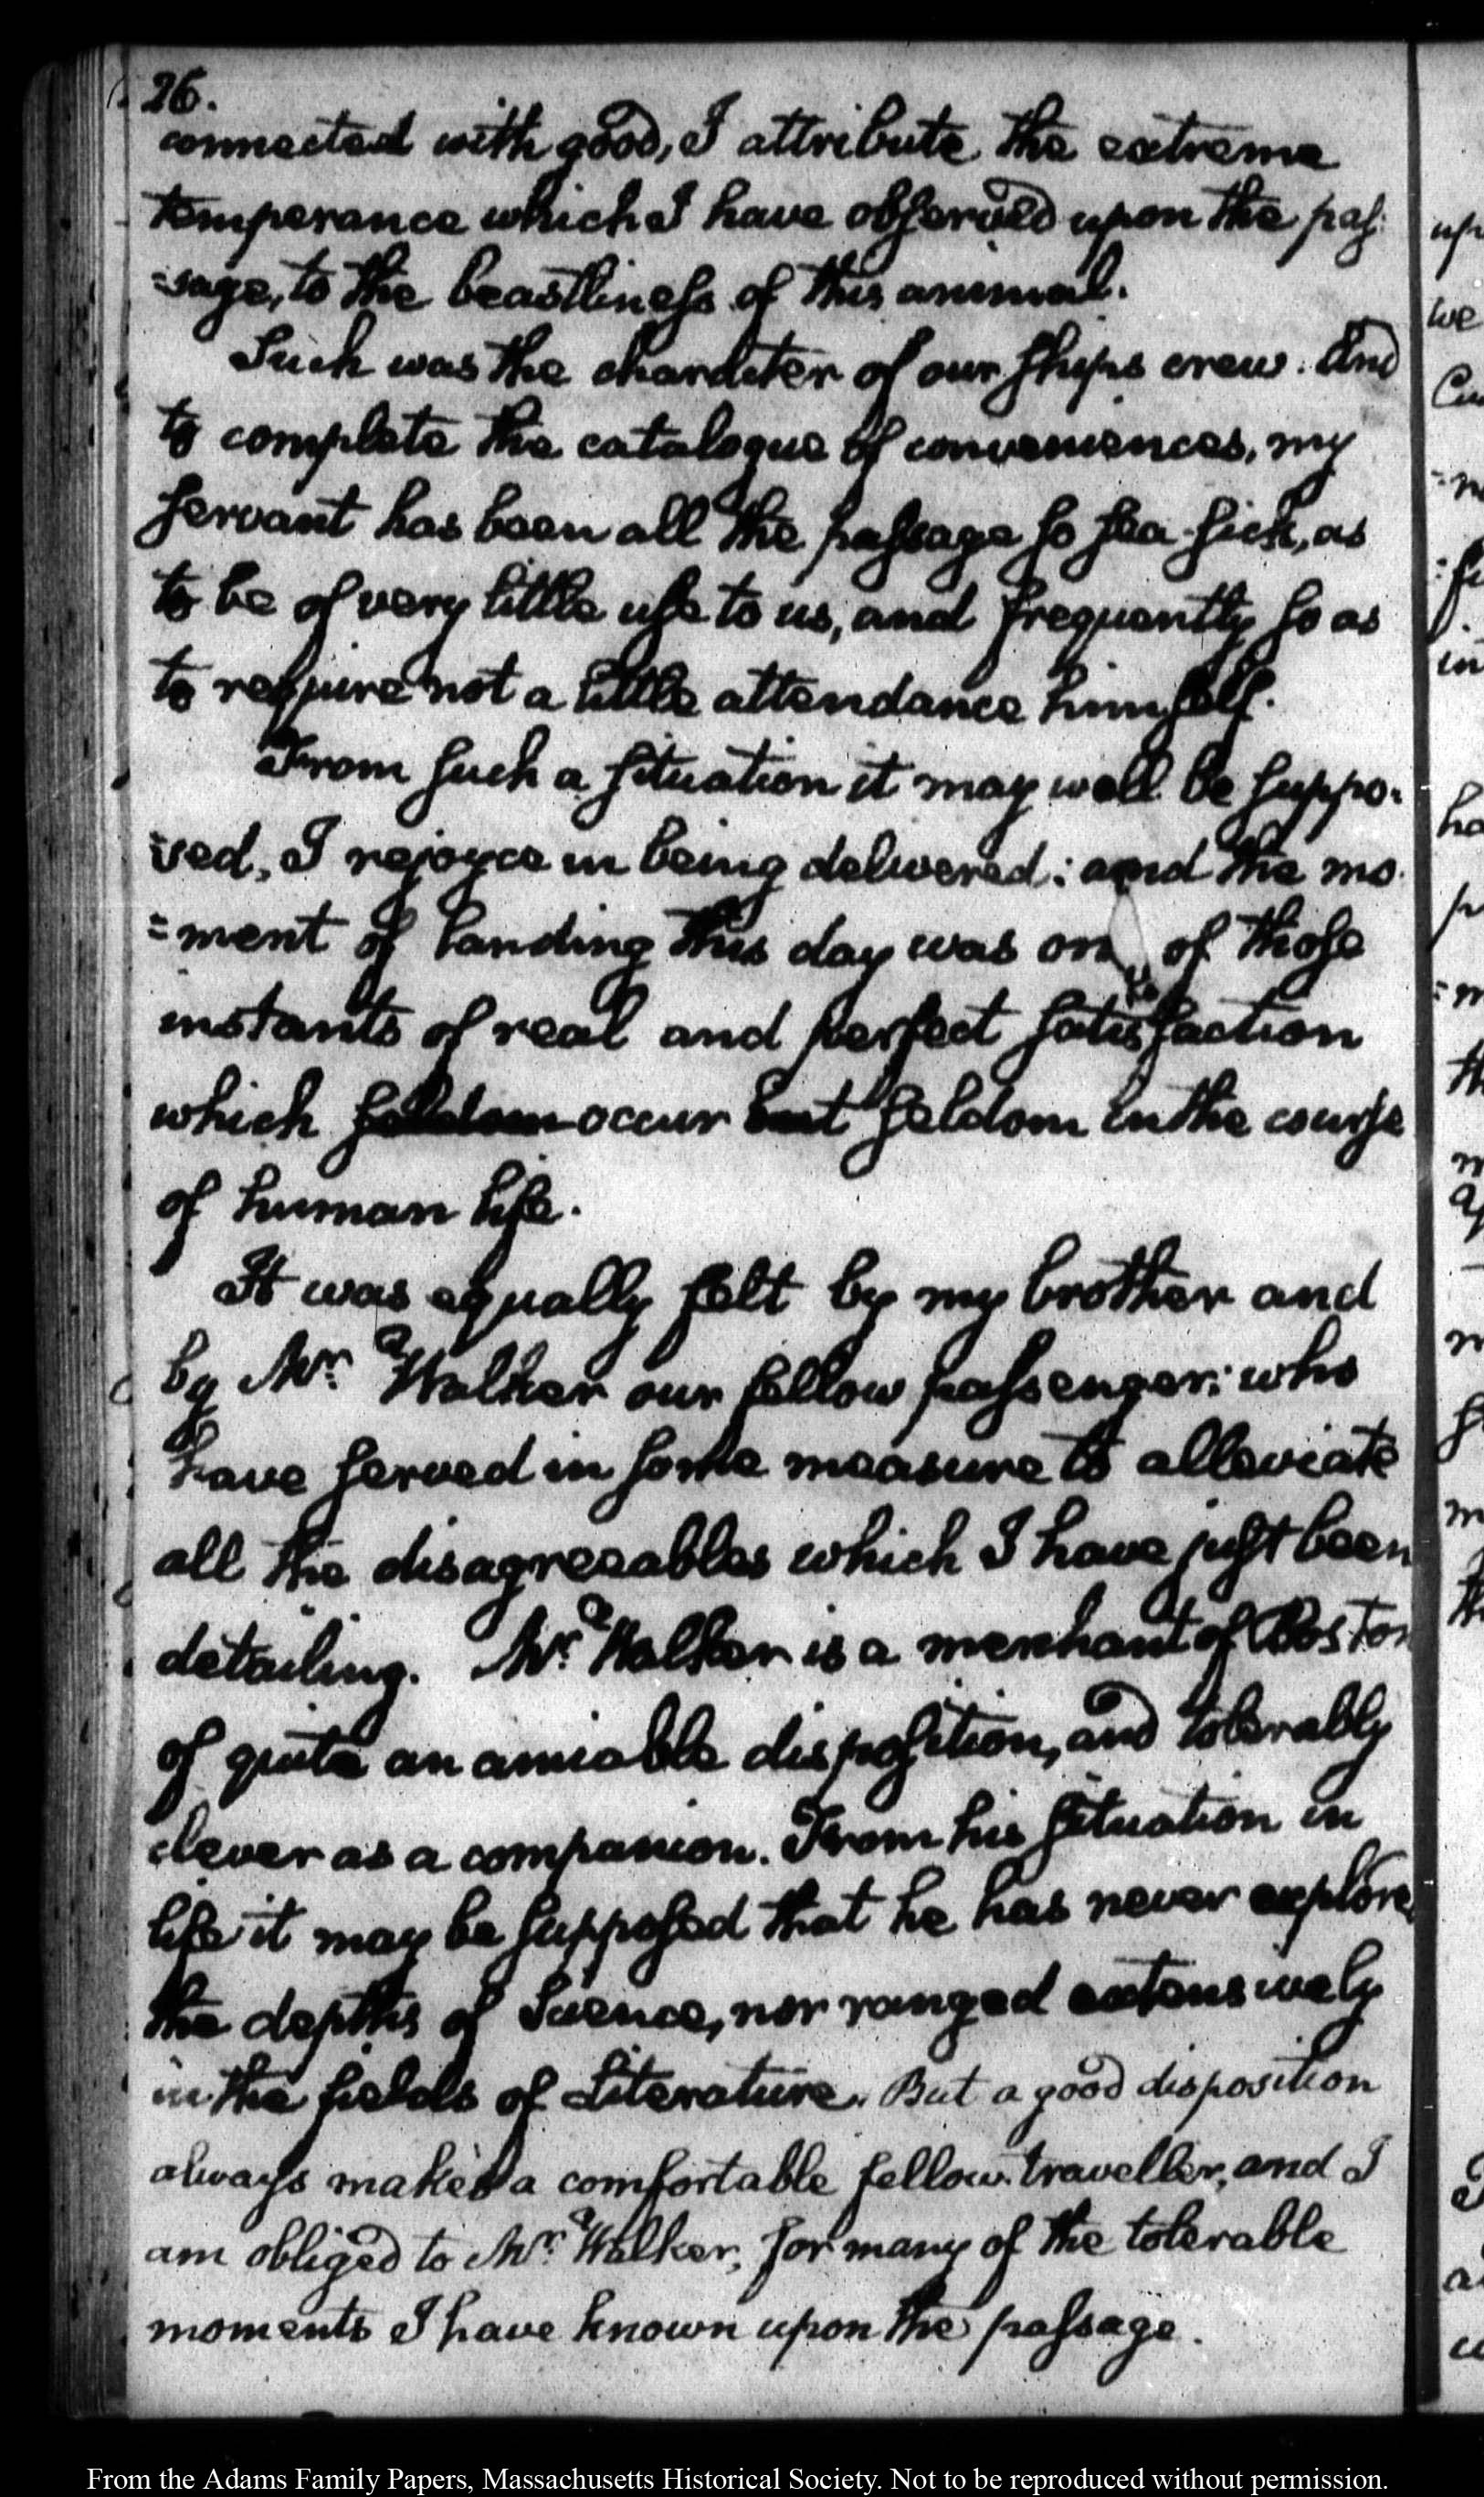 26.
connected with good, I attribute the extreme
temperance which I have observed upon the pas-
=sage, to the beastliness of this animal.
Such was the character of our ships crew. And
to complete the catalogue of conveniences, my
servant has been all the passage so sea-sick, as
to be of very little use to us, and frequently so as
to require not a little attendance himself.
From such a situation it may well be suppo-
=sed, I rejoyce in being delivered: and the mo-
=ment of landing this day was one of those
instants of real and perfect satisfaction
which seldom occur but seldom in the course
of human life.
It was equally felt by my brother and
by Mr. Walker our fellow passenger: who
have served in some measure to alleviate
all the disagreeables which I have just been
detailing. Mr. Walker is a merchant of Boston
of quite an amiable disposition, and tolerably
clever as a companion. From his situation in
life it may be supposed that he has never explored
the depths of Science, nor ranged extensively
in the fields of Literature. But a good disposition
always makes a comfortable fellow-traveller, and I
am obliged to Mr. Walker, for many of the tolerable
moments I have known upon the passage.
up
we
From the Adams Family Papers, Massachusetts Historical Society. Not to be reproduced without permission.